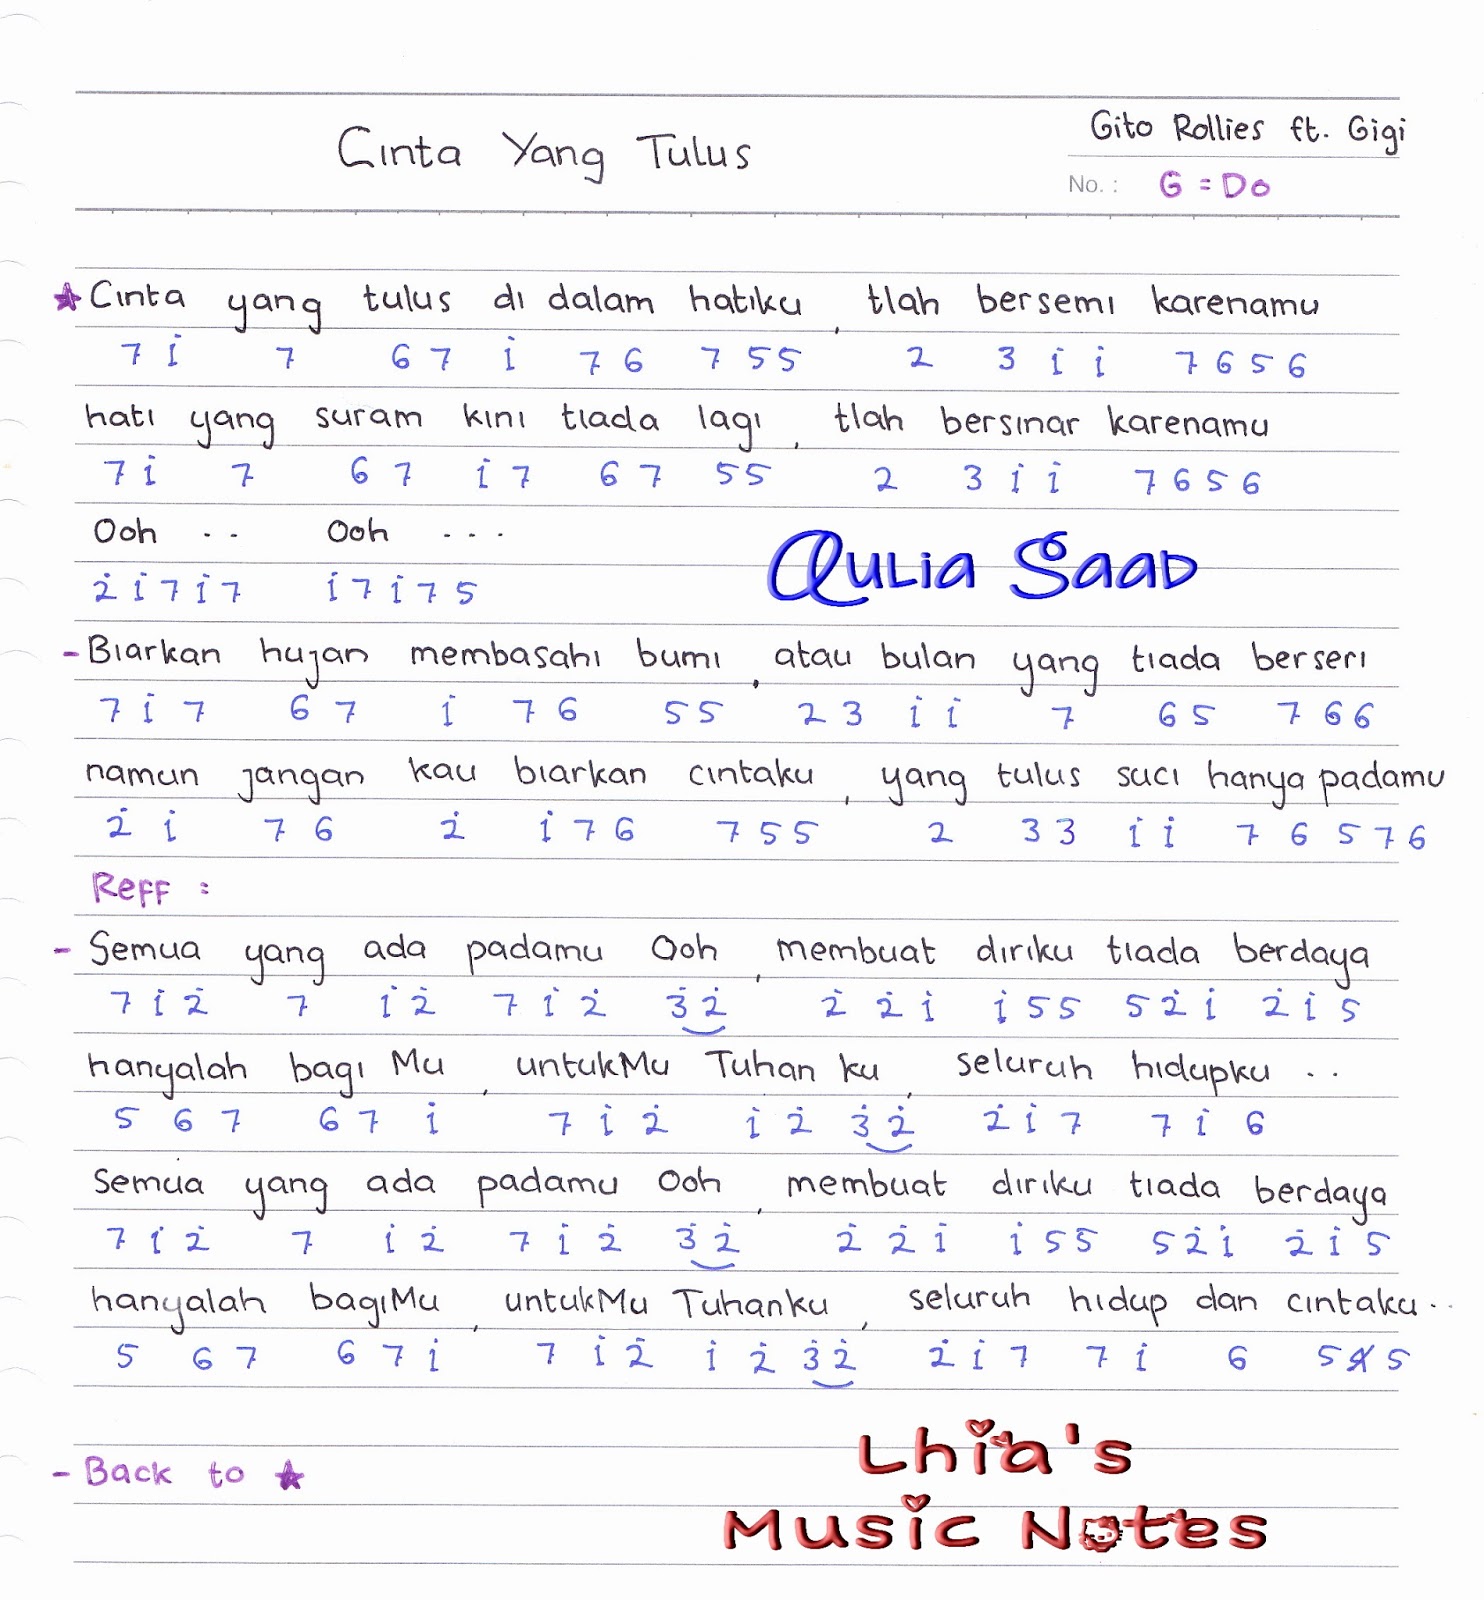 Cinta Yang Tulus
Gito Rollies ft. Gigi
No. : G = Do
★ Cinta yang tulus di dalam hatiku, tlah bersemi karenamu
7 i̇ 7 6 7 i̇ 7 6 7 5 5 2 3 i̇ i̇ 7 6 5 6
hati yang suram kini tiada lagi, tlah bersinar karenamu
7 i̇ 7 6 7 i̇ 7 6 7 5 5 2 3 i̇ i̇ 7 6 5 6
Ooh .. Ooh ...
2̇ i̇ 7 i̇ 7 i̇ 7 i̇ 7 5
Qulia Saad
- Biarkan hujan membasahi bumi, atau bulan yang tiada berseri
7 i̇ 7 6 7 i̇ 7 6 5 5 2 3 i̇ i̇ 7 6 5 7 6 6
namun jangan kau biarkan cintaku, yang tulus suci hanya padamu
2̇ i̇ 7 6 2̇ i̇ 7 6 7 5 5 2 3 3 i̇ i̇ 7 6 5 7 6
Reff :
- Semua yang ada padamu Ooh, membuat diriku tiada berdaya
7 i̇ 2̇ 7 i̇ 2̇ 7 i̇ 2̇ 3̇ 2̇ 2̇ 2̇ i̇ i̇ 5 5 5 2̇ i̇ 2̇ i̇ 5
hanyalah bagi Mu, untukMu Tuhan ku, seluruh hidupku ..
5 6 7 6 7 i̇ 7 i̇ 2̇ i̇ 2̇ 3̇ 2̇ 2̇ i̇ 7 7 i̇ 6
Semua yang ada padamu Ooh, membuat diriku tiada berdaya
7 i̇ 2̇ 7 i̇ 2̇ 7 i̇ 2̇ 3̇ 2̇ 2̇ 2̇ i̇ i̇ 5 5 5 2̇ i̇ 2̇ i̇ 5
hanyalah bagiMu, untukMu Tuhanku, seluruh hidup dan cintaku..
5 6 7 6 7 i̇ 7 i̇ 2̇ i̇ 2̇ 3̇ 2̇ 2̇ i̇ 7 7 i̇ 6 5 4̸ 5
- Back to ★
Lhia's
Music Notes